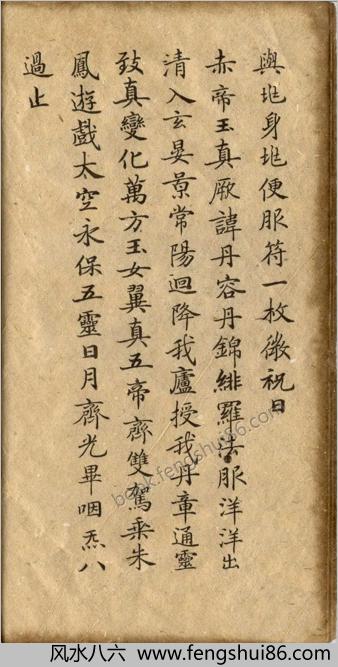 與兆身兆便服符一枚微祝曰
赤帝玉真厥諱丹容丹錦緋羅法服洋洋出
清入玄晏景常陽迴降我廬授我丹章通靈
致真變化萬方玉女翼真五帝齊雙駕乘朱
鳳遊戲太空永保五靈日月齊光畢咽炁八
過止
book.fengshui86.com
风水八六 www.fengshui86.com